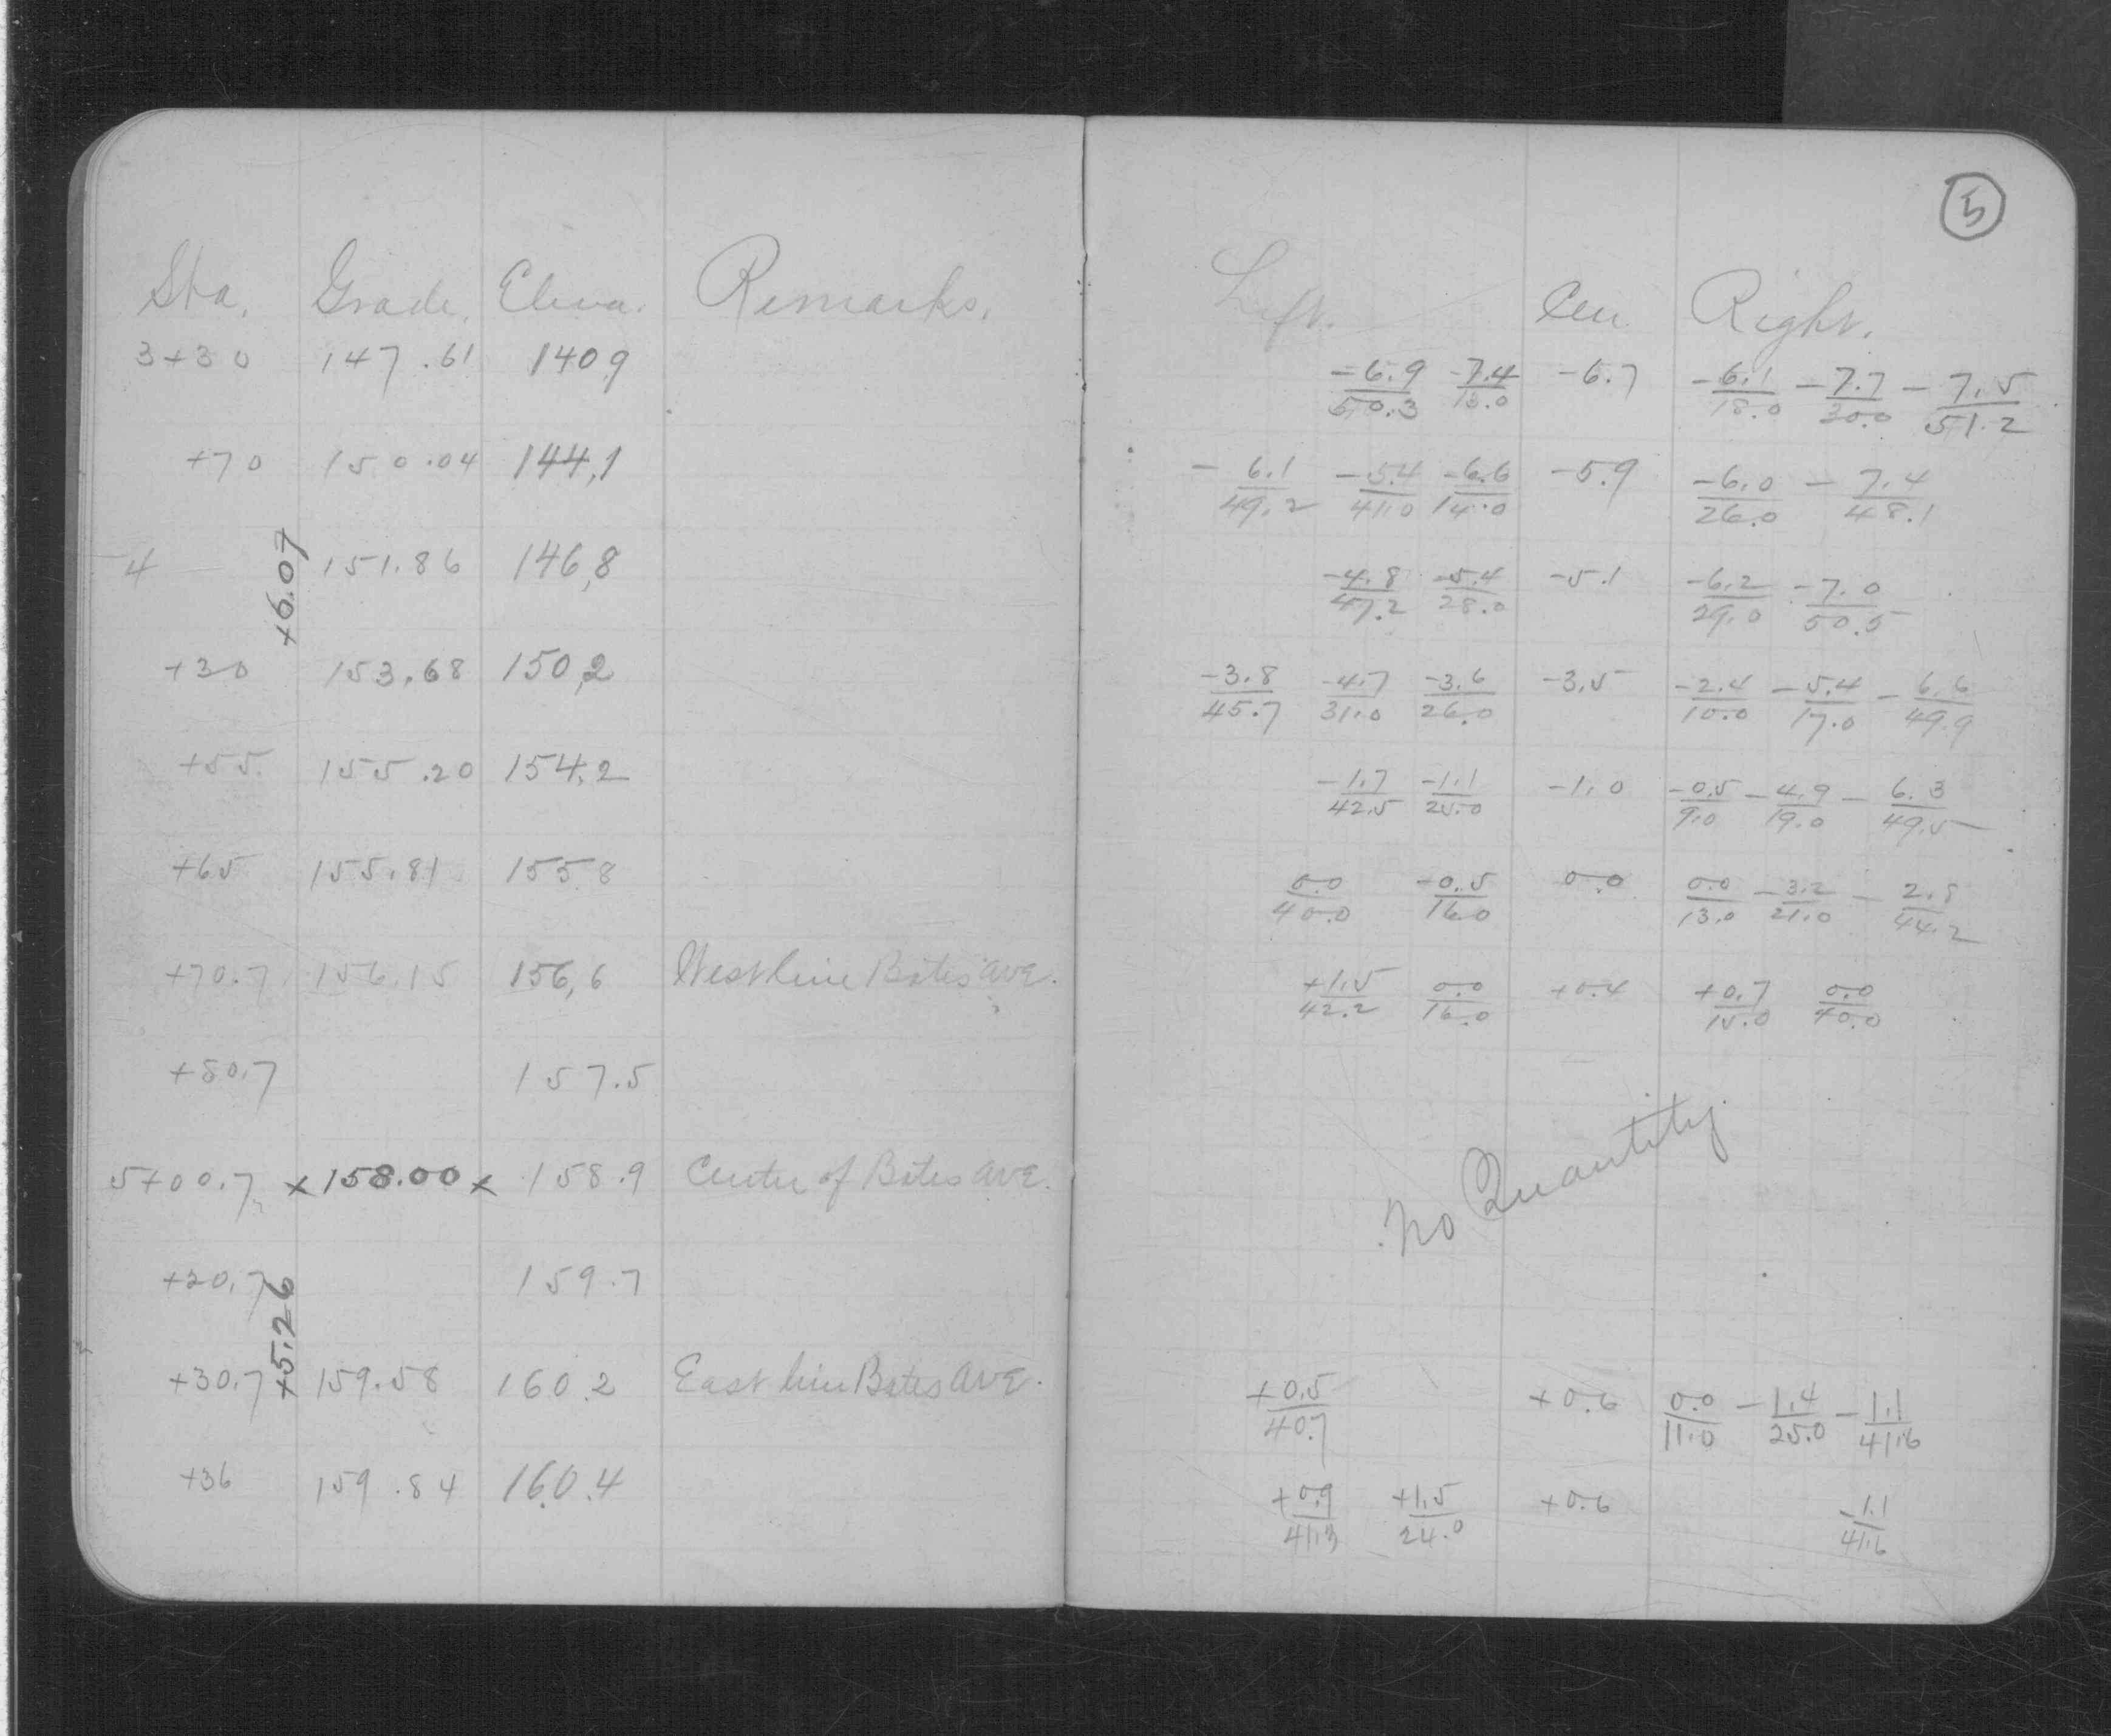 5
Sta. Grade. Eleva. Remarks.
3+30 147.61 140.9
+70 150.04 144.1
4 151.86 146.8
+6.07
+30 153.68 150.2
+55 155.20 154.2
+65 155.81 155.8
+70.7 156.15 156.6 West line Bates Ave.
+80.7 157.5
5+00.7 x 158.00 x 158.9 Center of Bates Ave.
+20.7 159.7
+5.26
+30.7 159.58 160.2 East line Bates Ave.
+36 159.84 160.4
Left. Cen Right.
-6.9/50.3 -7.4/13.0 -6.7 -6.1/18.0 -7.7/30.0 -7.5/51.2
-6.1/49.2 -5.4/41.0 -6.6/14.0 -5.9 -6.0/26.0 -7.4/48.1
-4.8/47.2 -5.4/28.0 -5.1 -6.2/29.0 -7.0/50.5
-3.8/45.7 -4.7/31.0 -3.6/26.0 -3.5 -2.4/10.0 -5.4/17.0 -6.6/49.9
-1.7/42.5 -1.1/25.0 -1.0 -0.5/9.0 -4.9/19.0 -6.3/49.5
0.0/40.0 -0.5/16.0 0.0 0.0/13.0 -3.2/21.0 -2.8/44.2
+1.5/42.2 0.0/16.0 +0.4 +0.7/15.0 0.0/40.0
No Quantity
+0.5/40.7 +0.6 0.0/11.0 -1.4/25.0 -1.1/41.6
+0.9/41.3 +1.5/24.0 +0.6 -1.1/41.6